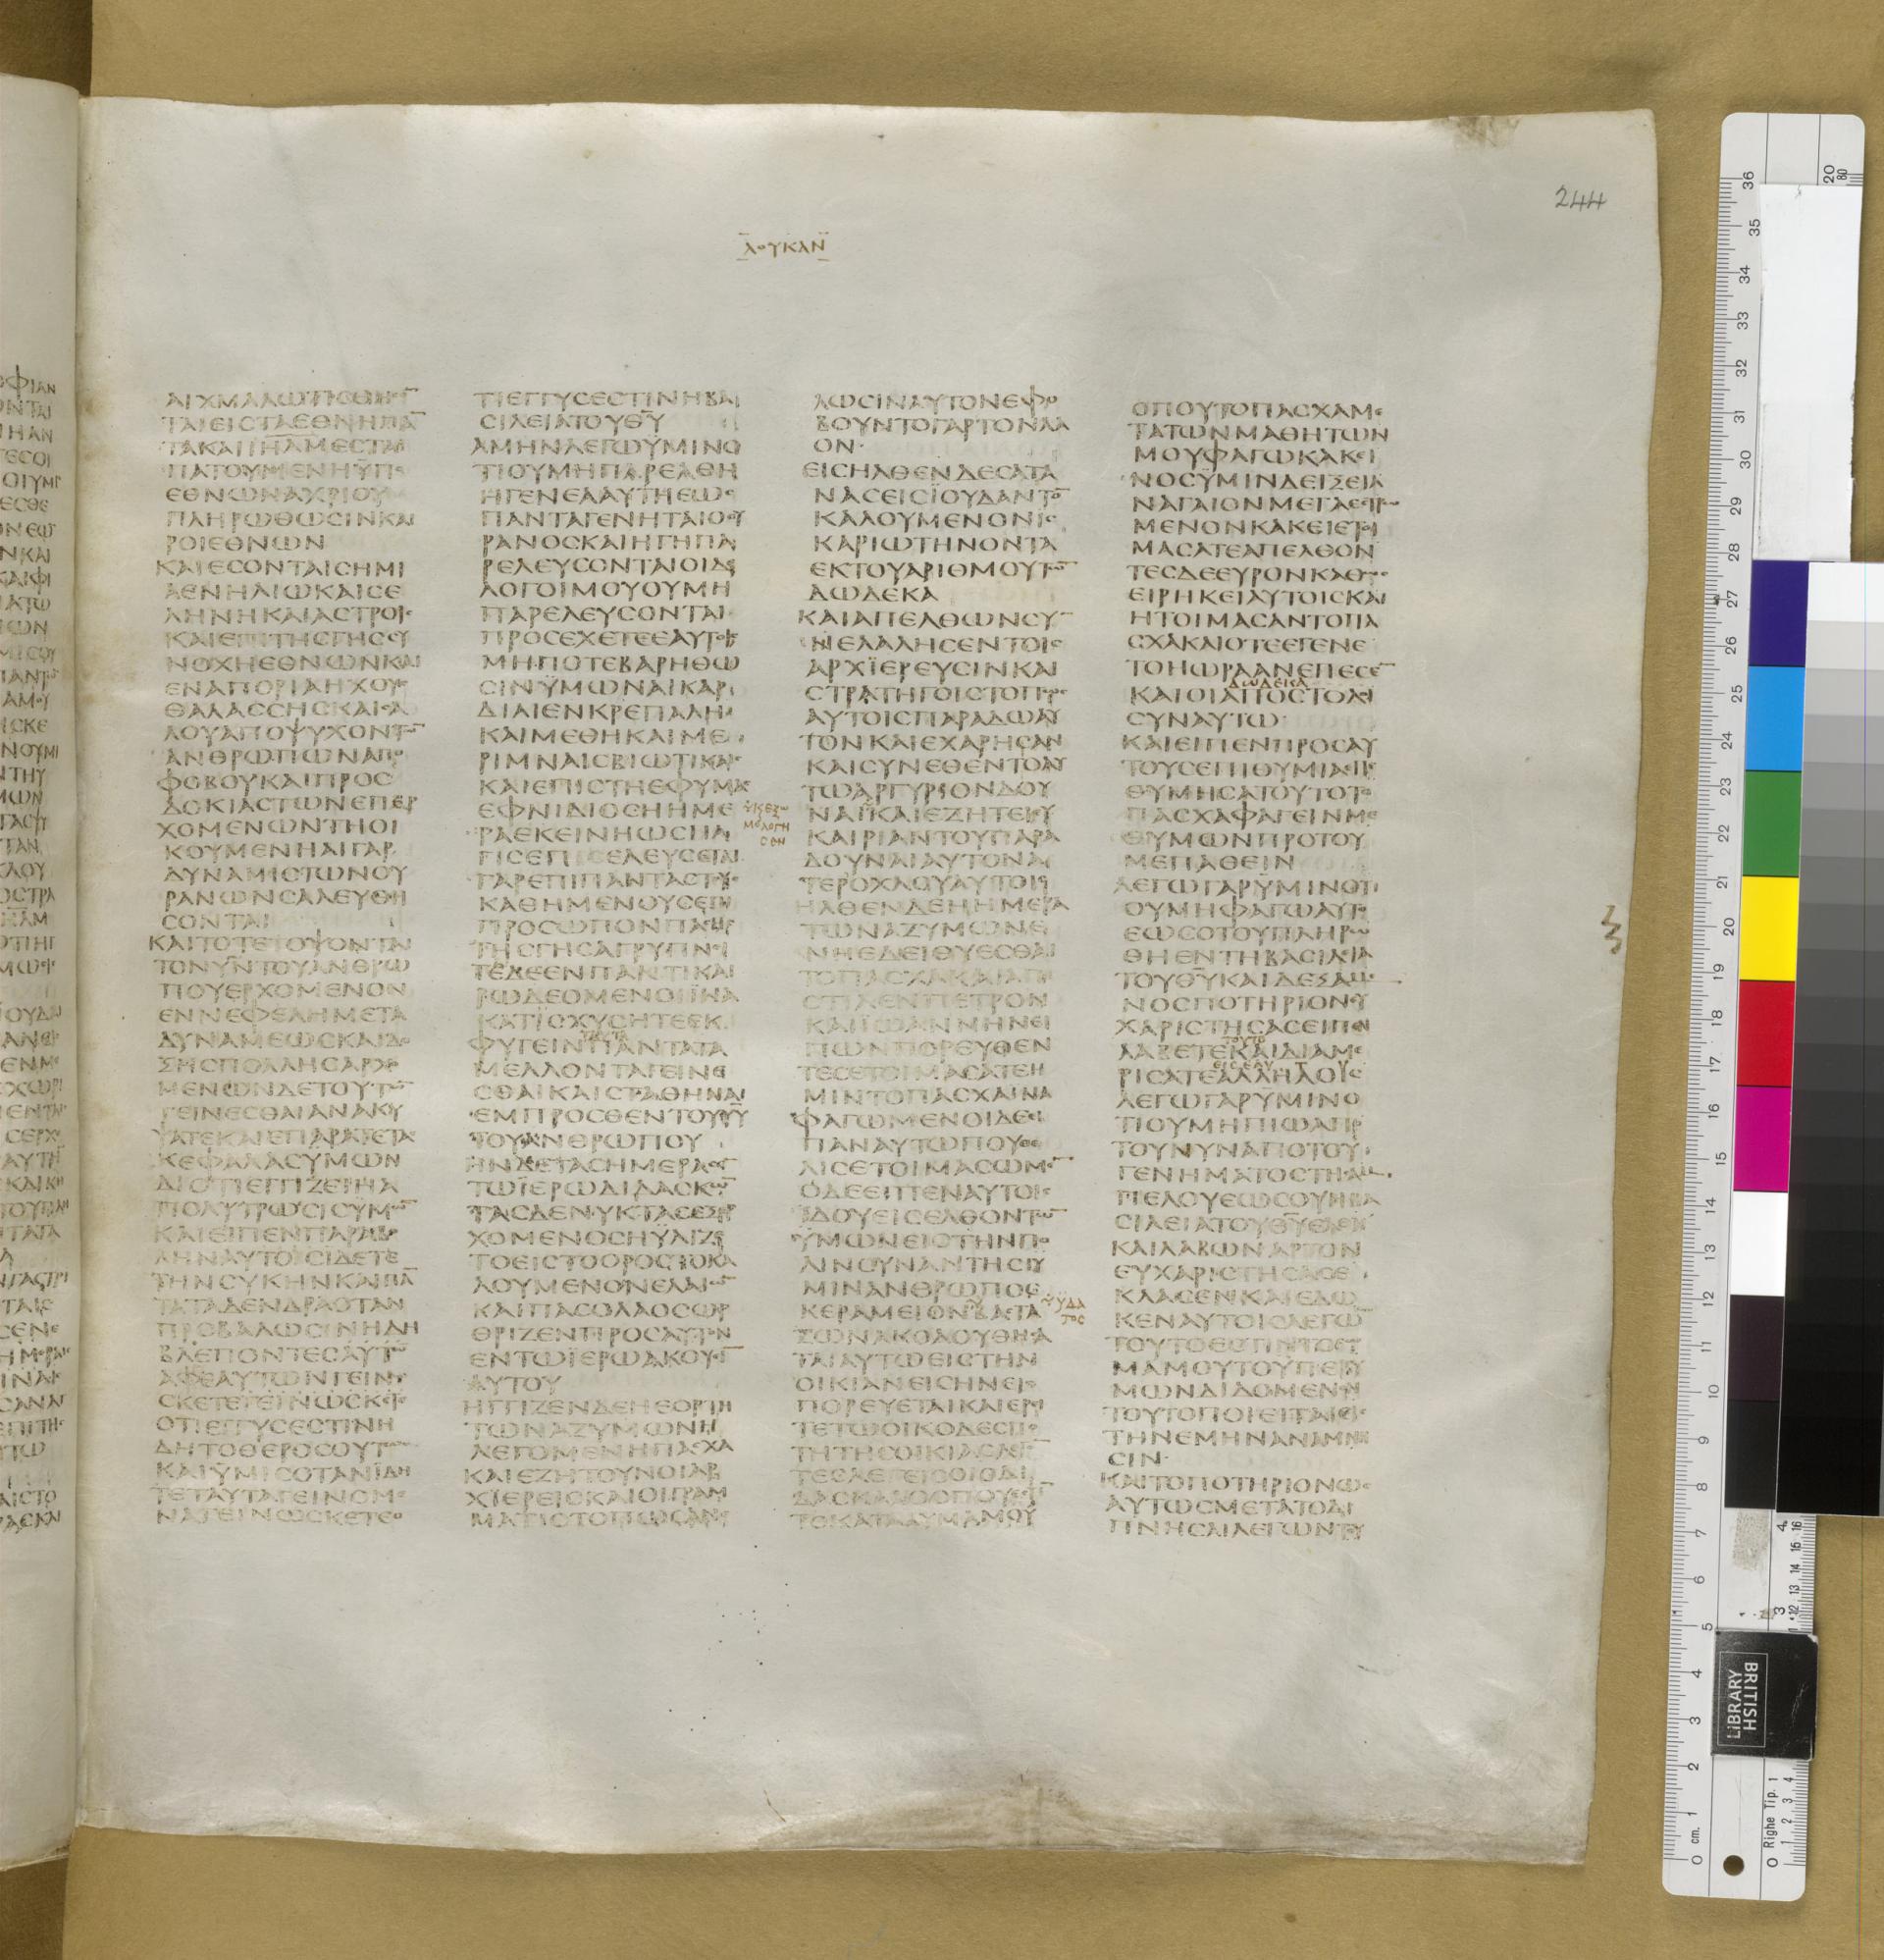 244
ΛΟΥΚΑΝ
ΑΙΧΜΑΛΩΤΙΣΘΗΣΟΝ
ΤΑΙΕΙΣΤΑΕΘΝΗΠΑ
ΤΑΚΑΙΙΗΛΜΕΣΤΑΙ
ΠΑΤΟΥΜΕΝΗΫΠΟ
ΕΘΝΩΝΑΧΡΙΟΥ
ΠΛΗΡΩΘΩΣΙΝΚΑΙ
ΡΟΙΕΘΝΩΝ
ΚΑΙΕΣΟΝΤΑΙΣΗΜΙ
ΑΕΝΗΛΙΩΚΑΙΣΕ
ΛΗΝΗΚΑΙΑΣΤΡΟΙΣ
ΚΑΙΕΠΙΤΗΣΓΗΣΣΥ
ΝΟΧΗΕΘΝΩΝΚΑΙ
ΕΝΑΠΟΡΙΑΗΧΟΥΣ
ΘΑΛΑΣΣΗΣΚΑΙΣΑ
ΛΟΥΑΠΟΨΥΧΟΝΤΩ
ΑΝΘΡΩΠΩΝΑΠΟ
ΦΟΒΟΥΚΑΙΠΡΟΣ
ΔΟΚΙΑΣΤΩΝΕΠΕΡ
ΧΟΜΕΝΩΝΤΗΟΙ
ΚΟΥΜΕΝΗΑΙΓΑΡ
ΔΥΝΑΜΙΣΤΩΝΟΥ
ΡΑΝΩΝΣΑΛΕΥΘΗ
ΣΟΝΤΑΙ
ΚΑΙΤΟΤΕΟΨΟΝΤΑΙ
ΤΟΝΥΝΤΟΥΑΝΘΡΩ
ΠΟΥΕΡΧΟΜΕΝΟΝ
ΕΝΝΕΦΕΛΗΜΕΤΑ
ΔΥΝΑΜΕΩΣΚΑΙΔΟ
ΞΗΣΠΟΛΛΗΣΑΡΧΟ
ΜΕΝΩΝΔΕΤΟΥΤΩ
ΓΕΙΝΕΣΘΑΙΑΝΑΚΥ
ΨΑΤΕΚΑΙΕΠΑΡΑΤΕΤΑΣ
ΚΕΦΑΛΑΣΫΜΩΝ
ΔΙΟΤΙΕΓΓΙΖΕΙΗΑ
ΠΟΛΥΤΡΩΣΙΣΥΜΩ
ΚΑΙΕΙΠΕΝΠΑΡΑΒΟ
ΛΗΝΑΥΤΟΙΣΙΔΕΤΕ
ΤΗΝΣΥΚΗΝΚΑΙΠΑ
ΤΑΤΑΔΕΝΔΡΑΟΤΑΝ
ΠΡΟΒΑΛΩΣΙΝΗΔΗ
ΒΛΕΠΟΝΤΕΣΑΥΤΩ
ΑΦΕΑΥΤΩΝΓΕΙΝΩ
ΣΚΕΤΕΓΕΙΝΩΣΚΕΤΕ
ΟΤΙΕΓΓΥΣΕΣΤΙΝΗ
ΔΗΤΟΘΕΡΟΣΟΥΤΩΣ
ΚΑΙΫΜΙΣΟΤΑΝΪΔΗ
ΤΕΤΑΥΤΑΓΕΙΝΟΜΕ
ΝΑΓΕΙΝΩΣΚΕΤΕΟ
ΤΙΕΓΓΥΣΕΣΤΙΝΗΒΑ
ΣΙΛΕΙΑΤΟΥΘΥ
ΑΜΗΝΛΕΓΩΫΜΙΝΟ
ΤΙΟΥΜΗΠΑΡΕΛΘΗ
ΗΓΕΝΕΑΑΥΤΗΕΩΣ
ΠΑΝΤΑΓΕΝΗΤΑΙΟΟΥ
ΡΑΝΟΣΚΑΙΗΓΗΠΑ
ΡΕΛΕΥΣΟΝΤΑΙΟΙΔΕ
ΛΟΓΟΙΜΟΥΟΥΜΗ
ΠΑΡΕΛΕΥΣΟΝΤΑΙ
ΠΡΟΣΕΧΕΤΕΕΑΥΤΟΙΣ
ΜΗΠΟΤΕΒΑΡΗΘΩ
ΣΙΝΫΜΩΝΑΙΚΑΡ
ΔΙΑΙΕΝΚΡΕΠΑΛΗ
ΚΑΙΜΕΘΗΚΑΙΜΕ
ΡΙΜΝΑΙΣΒΙΩΤΙΚΑΙΣ
ΚΑΙΕΠΙΣΤΗΕΦΥΜΑΣ
ΕΦΝΙΔΙΟΣΗΗΜΕ
ΡΑΕΚΕΙΝΗΩΣΠΑ
ΓΙΣΕΠΙΣΕΛΕΥΣΕΤΑΙ
ΓΑΡΕΠΙΠΑΝΤΑΣΤΟΥΣ
ΚΑΘΗΜΕΝΟΥΣΕΠΙ
ΠΡΟΣΩΠΟΝΠΑΣΗΣ
ΤΗΣΓΗΣΑΓΡΥΠΝΙ
ΤΕΔΕΕΝΠΑΝΤΙΚΑΙ
ΡΩΔΕΟΜΕΝΟΙΪΝΑ
ΚΑΤΙΣΧΥΣΗΤΕΕΚ
ΤΑΥΤΑ
ΦΥΓΕΙΝΠΑΝΤΑΤΑ
ΜΕΛΛΟΝΤΑΓΕΙΝΕ
ΣΘΑΙΚΑΙΣΤΑΘΗΝΑΙ
ΕΜΠΡΟΣΘΕΝΤΟΥΫΥ
ΤΟΥΑΝΘΡΩΠΟΥ
ΗΝΔΕΤΑΣΗΜΕΡΑΣ
ΤΩΪΕΡΩΔΙΔΑΣΚΩ
ΤΑΣΔΕΝΥΚΤΑΣΕΞΕΡ
ΧΟΜΕΝΟΣΗΫΛΙΖΕ
ΤΟΕΙΣΤΟΟΡΟΣΤΟΚΑ
ΛΟΥΜΕΝΟΝΕΛΑΙΩ
ΚΑΙΠΑΣΟΛΑΟΣΩΡ
ΘΡΙΖΕΝΠΡΟΣΑΥΤΟΝ
ΕΝΤΩΪΕΡΩΑΚΟΥΕΙ
ΑΥΤΟΥ
ΗΓΓΙΖΕΝΔΕΗΕΟΡΤΗ
ΤΩΝΑΖΥΜΩΝΗ
ΛΕΓΟΜΕΝΗΠΑΣΧΑ
ΚΑΙΕΖΗΤΟΥΝΟΙΑΡ
ΧΙΕΡΕΙΣΚΑΙΟΙΓΡΑΜ
ΜΑΤΙΣΤΟΠΩΣΑΝΕ
ΛΩΣΙΝΑΥΤΟΝΕΦΟ
ΒΟΥΝΤΟΓΑΡΤΟΝΛΑ
ΟΝ·
ΕΙΣΗΛΘΕΝΔΕΣΑΤΑ
ΝΑΣΕΙΣΪΟΥΔΑΝΤΟ
ΚΑΛΟΥΜΕΝΟΝΙΣ
ΚΑΡΙΩΤΗΝΟΝΤΑ
ΕΚΤΟΥΑΡΙΘΜΟΥΤΩ
ΔΩΔΕΚΑ
ΚΑΙΑΠΕΛΘΩΝΣΥ
ΝΕΛΑΛΗΣΕΝΤΟΙΣ
ΑΡΧΪΕΡΕΥΣΙΝΚΑΙ
ΣΤΡΑΤΗΓΟΙΣΤΟΠΩΣ
ΑΥΤΟΙΣΠΑΡΑΔΩΑΥ
ΤΟΝΚΑΙΕΧΑΡΗΣΑΝ
ΚΑΙΣΥΝΕΘΕΝΤΟΑΥ
ΤΩΑΡΓΥΡΙΟΝΔΟΥ
ΫΚΕΞΩ
ΜΟΛΟΓΗ
ΣΕΝ
ΝΑΙΚΑΙΕΖΗΤΕΙΕΥ
ΚΑΙΡΙΑΝΤΟΥΠΑΡΑ
ΔΟΥΝΑΙΑΥΤΟΝΑ
ΤΕΡΟΧΛΟΥΑΥΤΟΙΣ
ΗΛΘΕΝΔΕΗΗΜΕΡΑ
ΤΩΝΑΖΥΜΩΝΕ
ΝΗΕΔΕΙΘΥΕΣΘΑΙ
ΤΟΠΑΣΧΑΚΑΙΑΠΕ
ΣΤΙΛΕΝΠΕΤΡΟΝ
ΚΑΙΪΩΑΝΝΗΝΕΙ
ΠΩΝΠΟΡΕΥΘΕΝ
ΤΕΣΕΤΟΙΜΑΣΑΤΕΗ
ΜΙΝΤΟΠΑΣΧΑΙΝΑ
ΦΑΓΩΜΕΝΟΙΔΕΕΙ
ΠΑΝΑΥΤΩΠΟΥΘΕ
ΛΙΣΕΤΟΙΜΑΣΩΜΕ
ΟΔΕΕΙΠΕΝΑΥΤΟΙΣ
ΪΔΟΥΕΙΣΕΛΘΟΝΤΩ
ΫΜΩΝΕΙΣΤΗΝΠΟ
ΛΙΝΣΥΝΑΝΤΗΣΙΥ
ΜΙΝΑΝΘΡΩΠΟΣ
ΚΕΡΑΜΕΙΟΝΒΑΣΤΑ
ΫΔΑ
ΤΟΣ
ΖΩΝΑΚΟΛΟΥΘΗΣΑ
ΤΑΙΑΥΤΩΕΙΣΤΗΝ
ΟΙΚΙΑΝΕΙΣΗΝΕΙΣ
ΠΟΡΕΥΕΤΑΙΚΑΙΕΡΕΙ
ΤΕΤΩΟΙΚΟΔΕΣΠΟ
ΤΗΤΗΣΟΙΚΙΑΣΛΕΓ
ΤΕΣΛΕΓΕΙΣΟΙΟΔΙ
ΔΑΣΚΑΛΟΣΠΟΥΕΣΤΙ
ΤΟΚΑΤΑΛΥΜΑΜΟΥ
ΟΠΟΥΤΟΠΑΣΧΑΜΕ
ΤΑΤΩΝΜΑΘΗΤΩΝ
ΜΟΥΦΑΓΩΚΑΚΕΙ
ΝΟΣΫΜΙΝΔΕΙΞΕΙΑ
ΝΑΓΑΙΟΝΜΕΓΑΕΣΤΡΩ
ΜΕΝΟΝΚΑΚΕΙΕΤΟΙ
ΜΑΣΑΤΕΑΠΕΛΘΟΝ
ΤΕΣΔΕΕΥΡΟΝΚΑΘΩΣ
ΕΙΡΗΚΕΙΑΥΤΟΙΣΚΑΙ
ΗΤΟΙΜΑΣΑΝΤΟΠΑ
ΣΧΑΚΑΙΟΤΕΕΓΕΝΕ
ΤΟΗΩΡΑΑΝΕΠΕΣΕ
ΔΩΔΕΚΑ
ΚΑΙΟΙΑΠΟΣΤΟΛΟΙ
ΣΥΝΑΥΤΩ
ΚΑΙΕΙΠΕΝΠΡΟΣΑΥ
ΤΟΥΣΕΠΙΘΥΜΙΑΕΠΕ
ΘΥΜΗΣΑΤΟΥΤΟΤΟ
ΠΑΣΧΑΦΑΓΕΙΝΜΕ
ΘΥΜΩΝΠΡΟΤΟΥ
ΜΕΠΑΘΕΙΝ
ΛΕΓΩΓΑΡΫΜΙΝΟΤΙ
ΟΥΜΗΦΑΓΩΑΥΤΟ
ΕΩΣΟΤΟΥΠΛΗΡΩ
ΘΗΕΝΤΗΒΑΣΙΛΕΙΑ
ΤΟΥΘΥΚΑΙΔΕΞΑΜΕ
ΝΟΣΠΟΤΗΡΙΟΝΕΥ
ΧΑΡΙΣΤΗΣΑΣΕΙΠΕΝ
ΤΟΥΤΟ
ΛΑΒΕΤΕΚΑΙΔΙΑΜΕ
ΕΙΣΕΑΥΤΟΥΣ
ΡΙΣΑΤΕΑΛΛΗΛΟΙΣ
ΛΕΓΩΓΑΡΥΜΙΝΟ
ΤΙΟΥΜΗΠΙΩΑΠΟ
ΤΟΥΝΥΝΑΠΟΤΟΥ
ΓΕΝΗΜΑΤΟΣΤΗΣΑΜ
ΠΕΛΟΥΕΩΣΟΥΗΒΑ
ΣΙΛΕΙΑΤΟΥΘΥΕΛΘΗ
ΚΑΙΛΑΒΩΝΑΡΤΟΝ
ΕΥΧΑΡΙΣΤΗΣΑΣΕ
ΚΛΑΣΕΝΚΑΙΕΔΩ
ΚΕΝΑΥΤΟΙΣΛΕΓΩ
ΤΟΥΤΟΕΣΤΙΝΤΟΣΩ
ΜΑΜΟΥΤΟΫΠΕΡΥ
ΜΩΝΔΙΔΟΜΕΝΟΝ
ΤΟΥΤΟΠΟΙΕΙΤΑΙΕΙΣ
ΤΗΝΕΜΗΝΑΝΑΜΝΗ
ΣΙΝ·
ΚΑΙΤΟΠΟΤΗΡΙΟΝΩΣ
ΑΥΤΩΣΜΕΤΑΤΟΔΙ
ΠΝΗΣΑΙΛΕΓΩΝΤΟΥ
BRITISH
LIBRARY